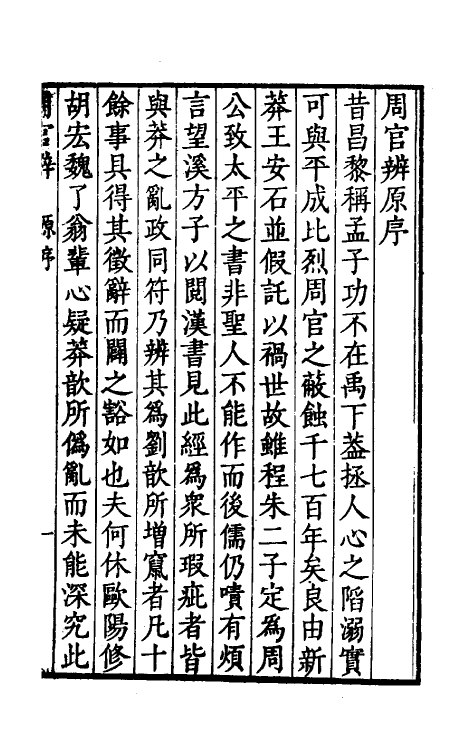 周官辨原序
昔昌黎稱孟子功不在禹下葢拯人心之陷溺實
可與平成比烈周官之蔽蝕千七百年矣良由新
莽王安石並假託以禍世故雖程朱二子定為周
公致太平之書非聖人不能作而後儒仍嘖有煩
言望溪方子以閱漢書見此經爲衆所瑕疵者皆
與莽之亂政同符乃辨其爲劉歆所增竄者凡十
餘事具得其徵辭而闢之豁如也夫何休歐陽修
胡宏魏了翁輩心疑莽歆所僞亂而未能深究此
周官辨 原序 一